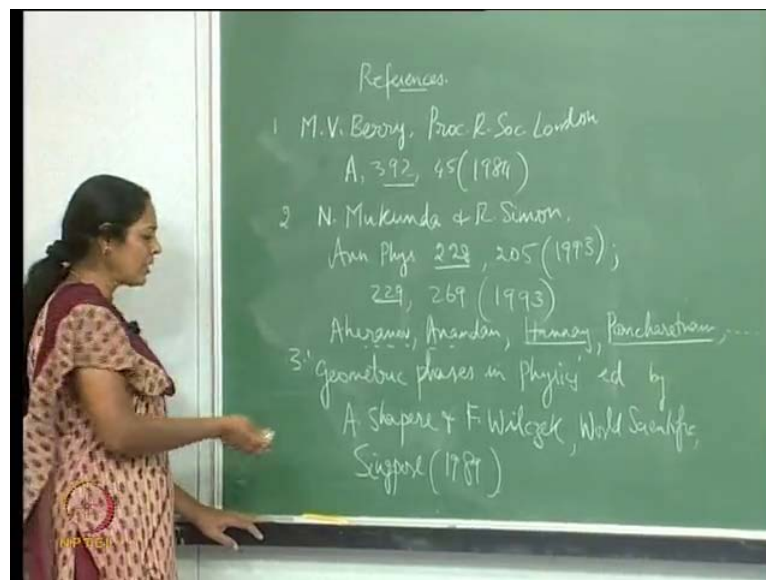 References.
1 M.V. Berry, Proc. R. Soc. London
A, 392, 45 (1984)
2 N. Mukunda & R. Simon.
Ann Phys 228, 205 (1993);
229, 269 (1993)
Aharanov, Anandan, Hannay, Pancharatnam, .....
3. 'Geometric phases in Physics' ed by
A. Shapere & F. Wilczek, World Scientific,
Singpore (1989)
NPTEL